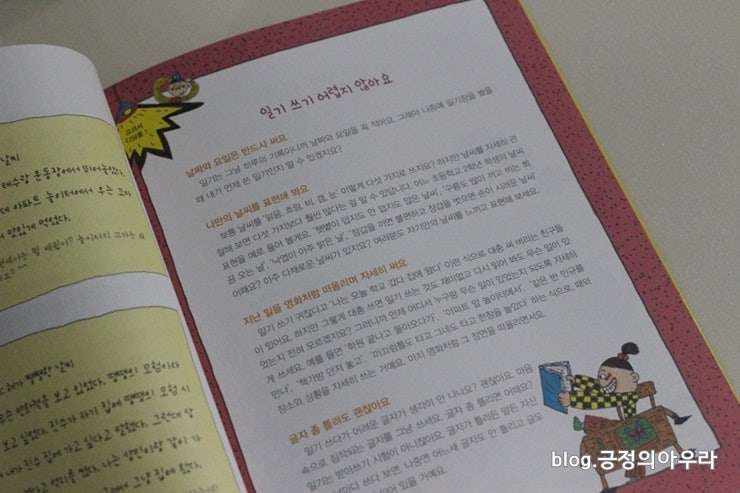 날씨
태수랑 운동장에서 뛰어놀았다.
데 아파트 놀이터에서 우는 꼬마
서 맛있게 먹었다.
^^
해가 쨍쨍한 날씨
만화책을 보고 있었다. 땡땡의 모험이라
보고 싶었다. 진수가 자기 집에 땡땡의 모험 시
내가 진수 집에 가고 싶다고 말했다. 그랬더니 상
고 성민이랑 같이 가
그냥 집에 왔다.
교과서
디딤돌
일기 쓰기 어렵지 않아요
날짜와 요일은 반드시 써요
일기는 그날 하루의 기록이니까 날짜와 요일을 꼭 적어요. 그래야 나중에 일기장을 봤을
때 내가 언제 쓴 일기인지 알 수 있겠지요?
나만의 날씨를 표현해 봐요
보통 날씨를 '맑음, 흐림, 비, 갬, 눈' 이렇게 다섯 가지로 쓰지요? 하지만 날씨를 자세히 관
찰해 보면 다섯 가지보다 훨씬 많다는 걸 알 수 있답니다. 어느 초등학교 2학년 학생의 날씨
표현을 예로 들어 볼게요. '햇볕이 덥지도 안 덥지도 않은 날씨', '구름도 많이 끼고 비는 찍
끔 오는 날', '낙엽이 아주 밝은 날', '장갑을 끼면 불편하고 장갑을 벗으면 손이 시려운 날씨'
어때요? 아주 다채로운 날씨가 있지요? 여러분도 자기만의 날씨를 느끼고 표현해 보세요.
지난 일을 영화처럼 떠올리며 자세히 써요
일기 쓰기 귀찮다고 '나는 오늘 학교 갔다 집에 왔다' 이런 식으로 대충 써 버리는 친구들
이 있어요. 하지만 그렇게 대충 쓰면 일기 쓰는 것도 재미없고 다시 읽어 봐도 무슨 일이 있
었는지 전혀 모르겠지요? 그러니까 언제 어디서 누구랑 무슨 일이 있었는지 되도록 자세하
게 쓰세요. 예를 들면 '학원 끝나고 돌아오다가', '아파트 앞 놀이터에서', '같은 반 민규를
만나', '책가방 던져 놓고', '미끄럼틀도 타고 그네도 타고 한참을 놀았다' 하는 식으로, 때와
장소와 상황을 자세히 쓰는 거예요. 마치 영화처럼 그 장면을 떠올리면서요.
글자 좀 틀려도 괜찮아요
일기 쓰다가 어려운 글자가 생각이 안 나나요? 괜찮아요. 마음
속으로 짐작되는 글자를 그냥 쓰세요. 글자 좀 틀리면 어때요?
일기는 받아쓰기 시험이 아니잖아요. 글자가 틀리든 말든 자신
날마다 쓰다 보면, 나중엔 어느새 글자도 안 틀리고 글도
되어 있을 거예요.
blog.긍정의아우라